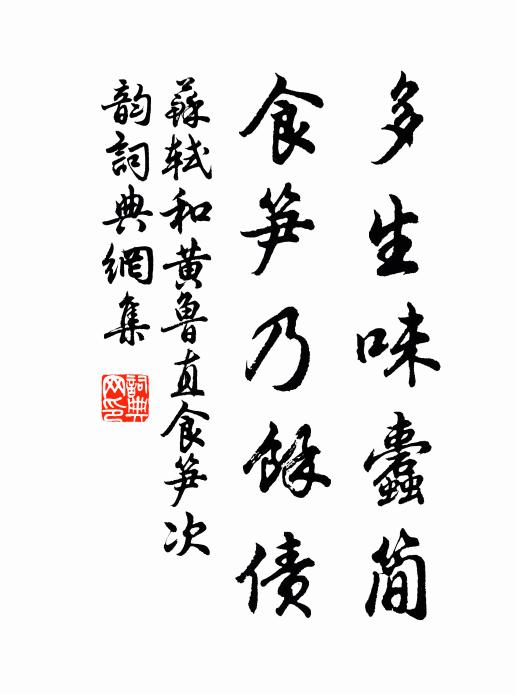 多生味蠹簡
食笋乃餘債
蘇軾和黃魯直食笋次
韵詞典網集
詞典網印